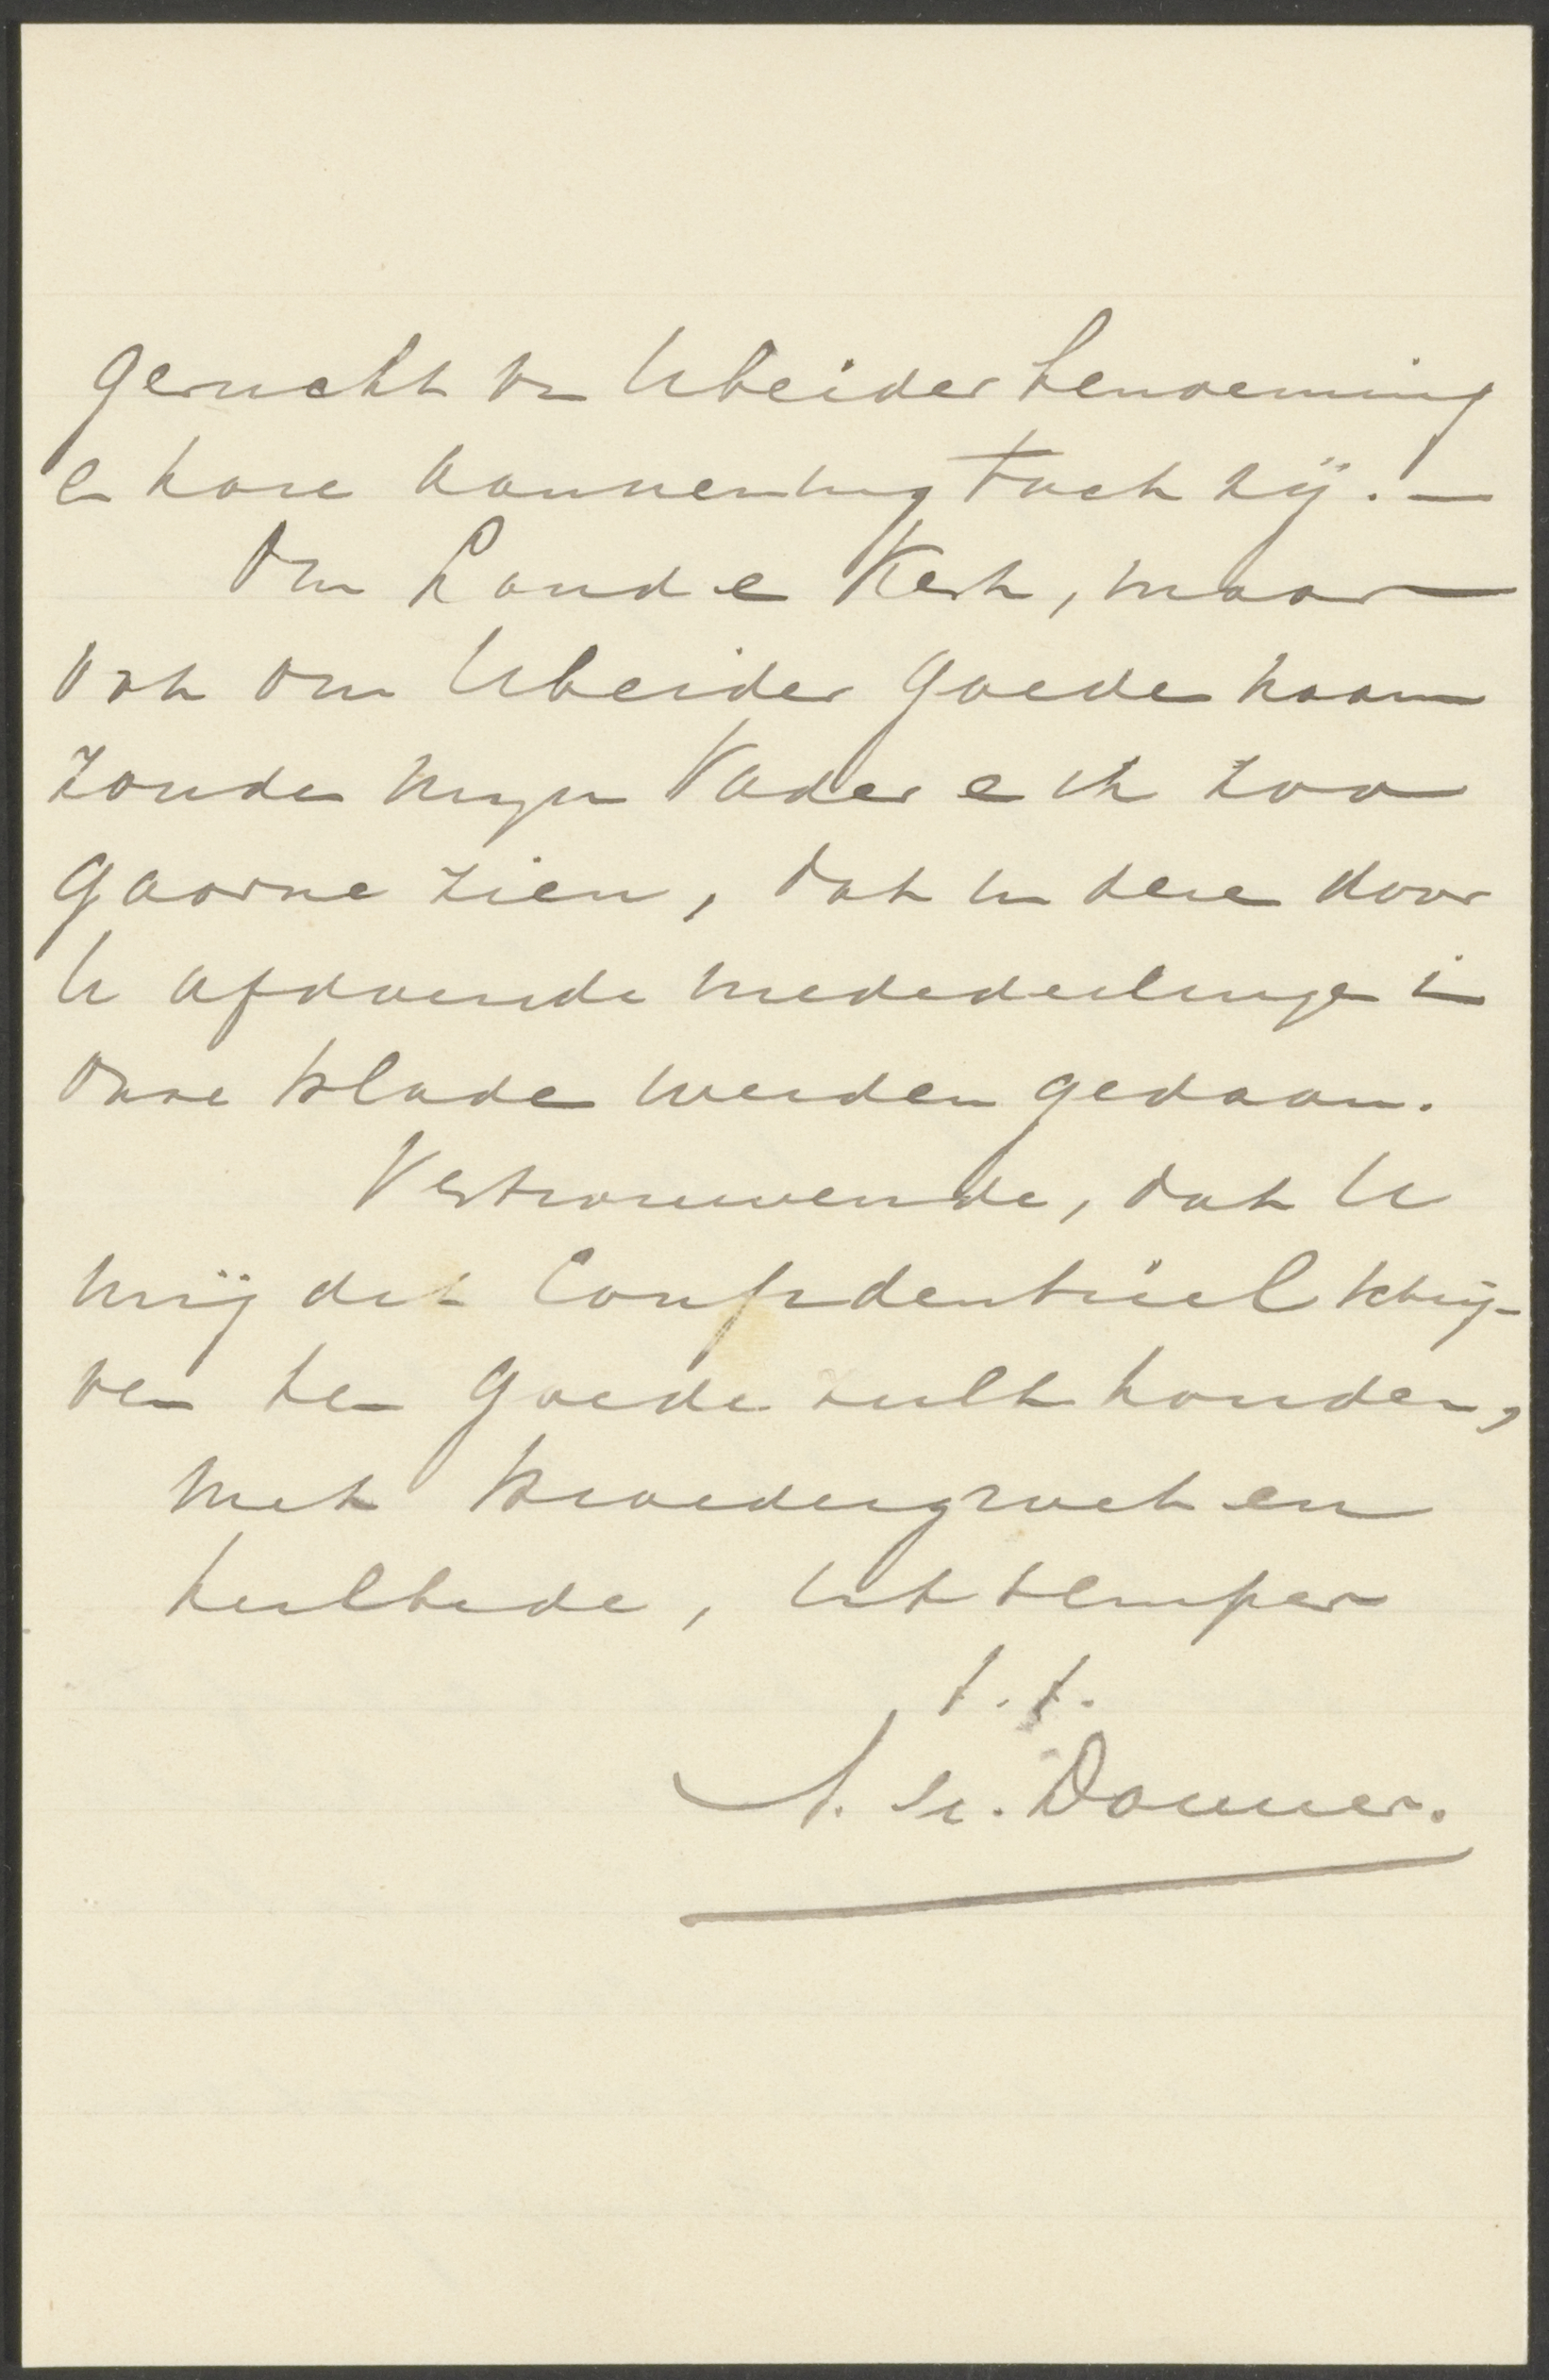 gerucht van Ubeider benoeming
en hare aanneming toch zij. —
Om Land en Kerk, maar
ook om Ubeider goeden naam
zouden mijn Vader en ik zoo
gaarne zien, dat in deze door
U afdoende mededeelingen in
onze bladen werden gedaan.
Vertrouwende, dat U
mij dit confidentieel schrij-
ven ten goede zult houden,
met broedergroet en
heilbede, ut semper
t.t.
A. St. Donner.